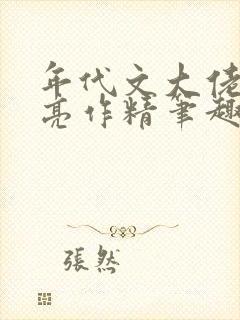 年代文大佬
亮作精笔趣
張然